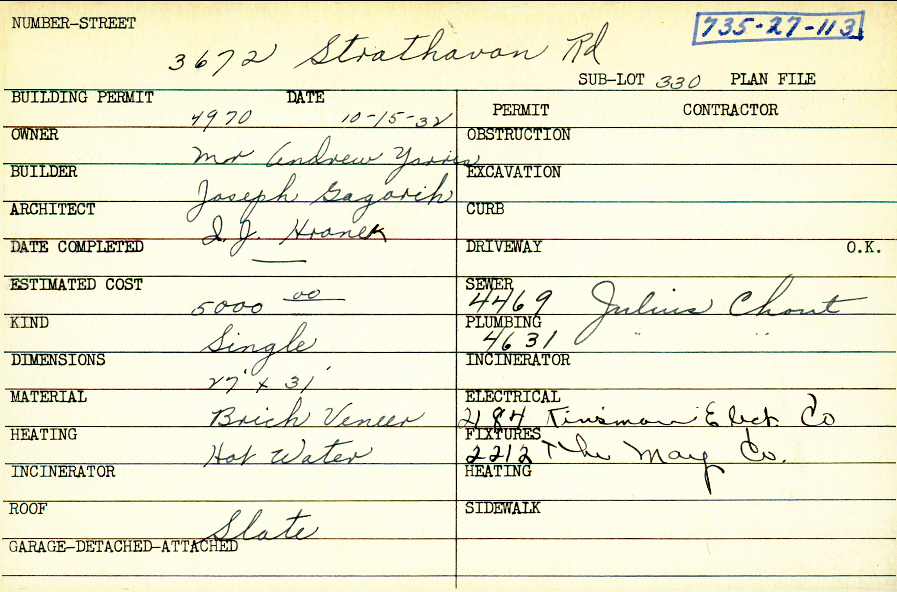 NUMBER-STREET
735-27-113
3672 Strathavon Rd
SUB-LOT 330 PLAN FILE
BUILDING PERMIT DATE
4970 10-15-32
PERMIT CONTRACTOR
OWNER
Mr Andrew
OBSTRUCTION
BUILDER
Joseph Gagarih
EXCAVATION
ARCHITECT
I. J. Hranek
CURB
DATE COMPLETED
—
DRIVEWAY O.K.
ESTIMATED COST
5000 00
SEWER
4469 Julius Chout
KIND
Single
PLUMBING
4631 " "
DIMENSIONS
27' x 31'
INCINERATOR
MATERIAL
Brich Veneer
ELECTRICAL
2184 Kinsman Elect Co
HEATING
Hot Water
FIXTURES
2212 The May Co.
INCINERATOR
HEATING
ROOF
Slate
SIDEWALK
GARAGE-DETACHED-ATTACHED